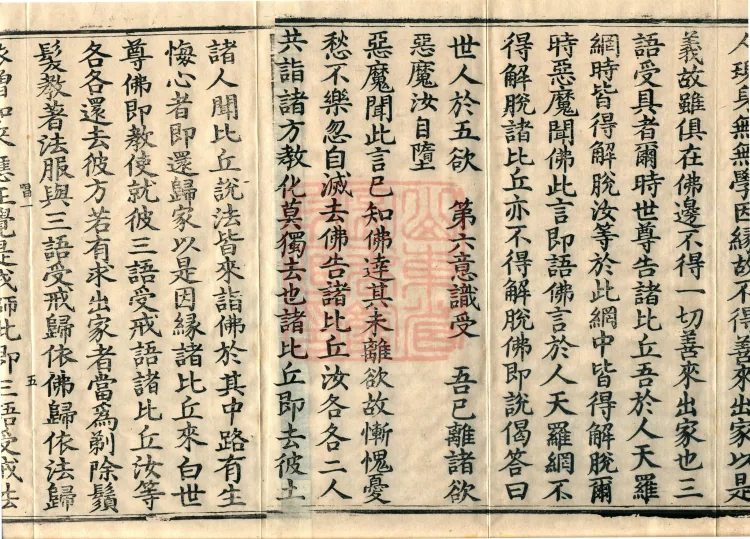 人現身無無學因縁故不得善來出家以是
義故雖俱在佛邊不得一切善來出家也三
語受具者爾時世尊告諸比丘吾於人天羅
網時皆得解脫汝等於此網中皆得解脫爾
時惡魔聞佛此言即語佛言於人天羅網不
得解脫諸比丘亦不得解脫佛即說偈答曰
世人於五欲　第六意識受　吾已離諸欲
惡魔汝自墮
惡魔聞此言已知佛達其未離欲故慚愧憂
愁不樂忽自滅去佛告諸比丘汝各各二人
共詣諸方教化莫獨去也諸比丘即去彼土
諸人聞比丘說法皆來詣佛於其中路有生
悔心者即還歸家以是因縁諸比丘來白世
尊佛即教使就彼三語受戒語諸比丘汝等
各各還去彼方若有求出家者當爲剃除鬚
髮教著法服與三語受戒歸依佛歸依法歸
五
依僧如來應正覺是我師此即三語受戒法